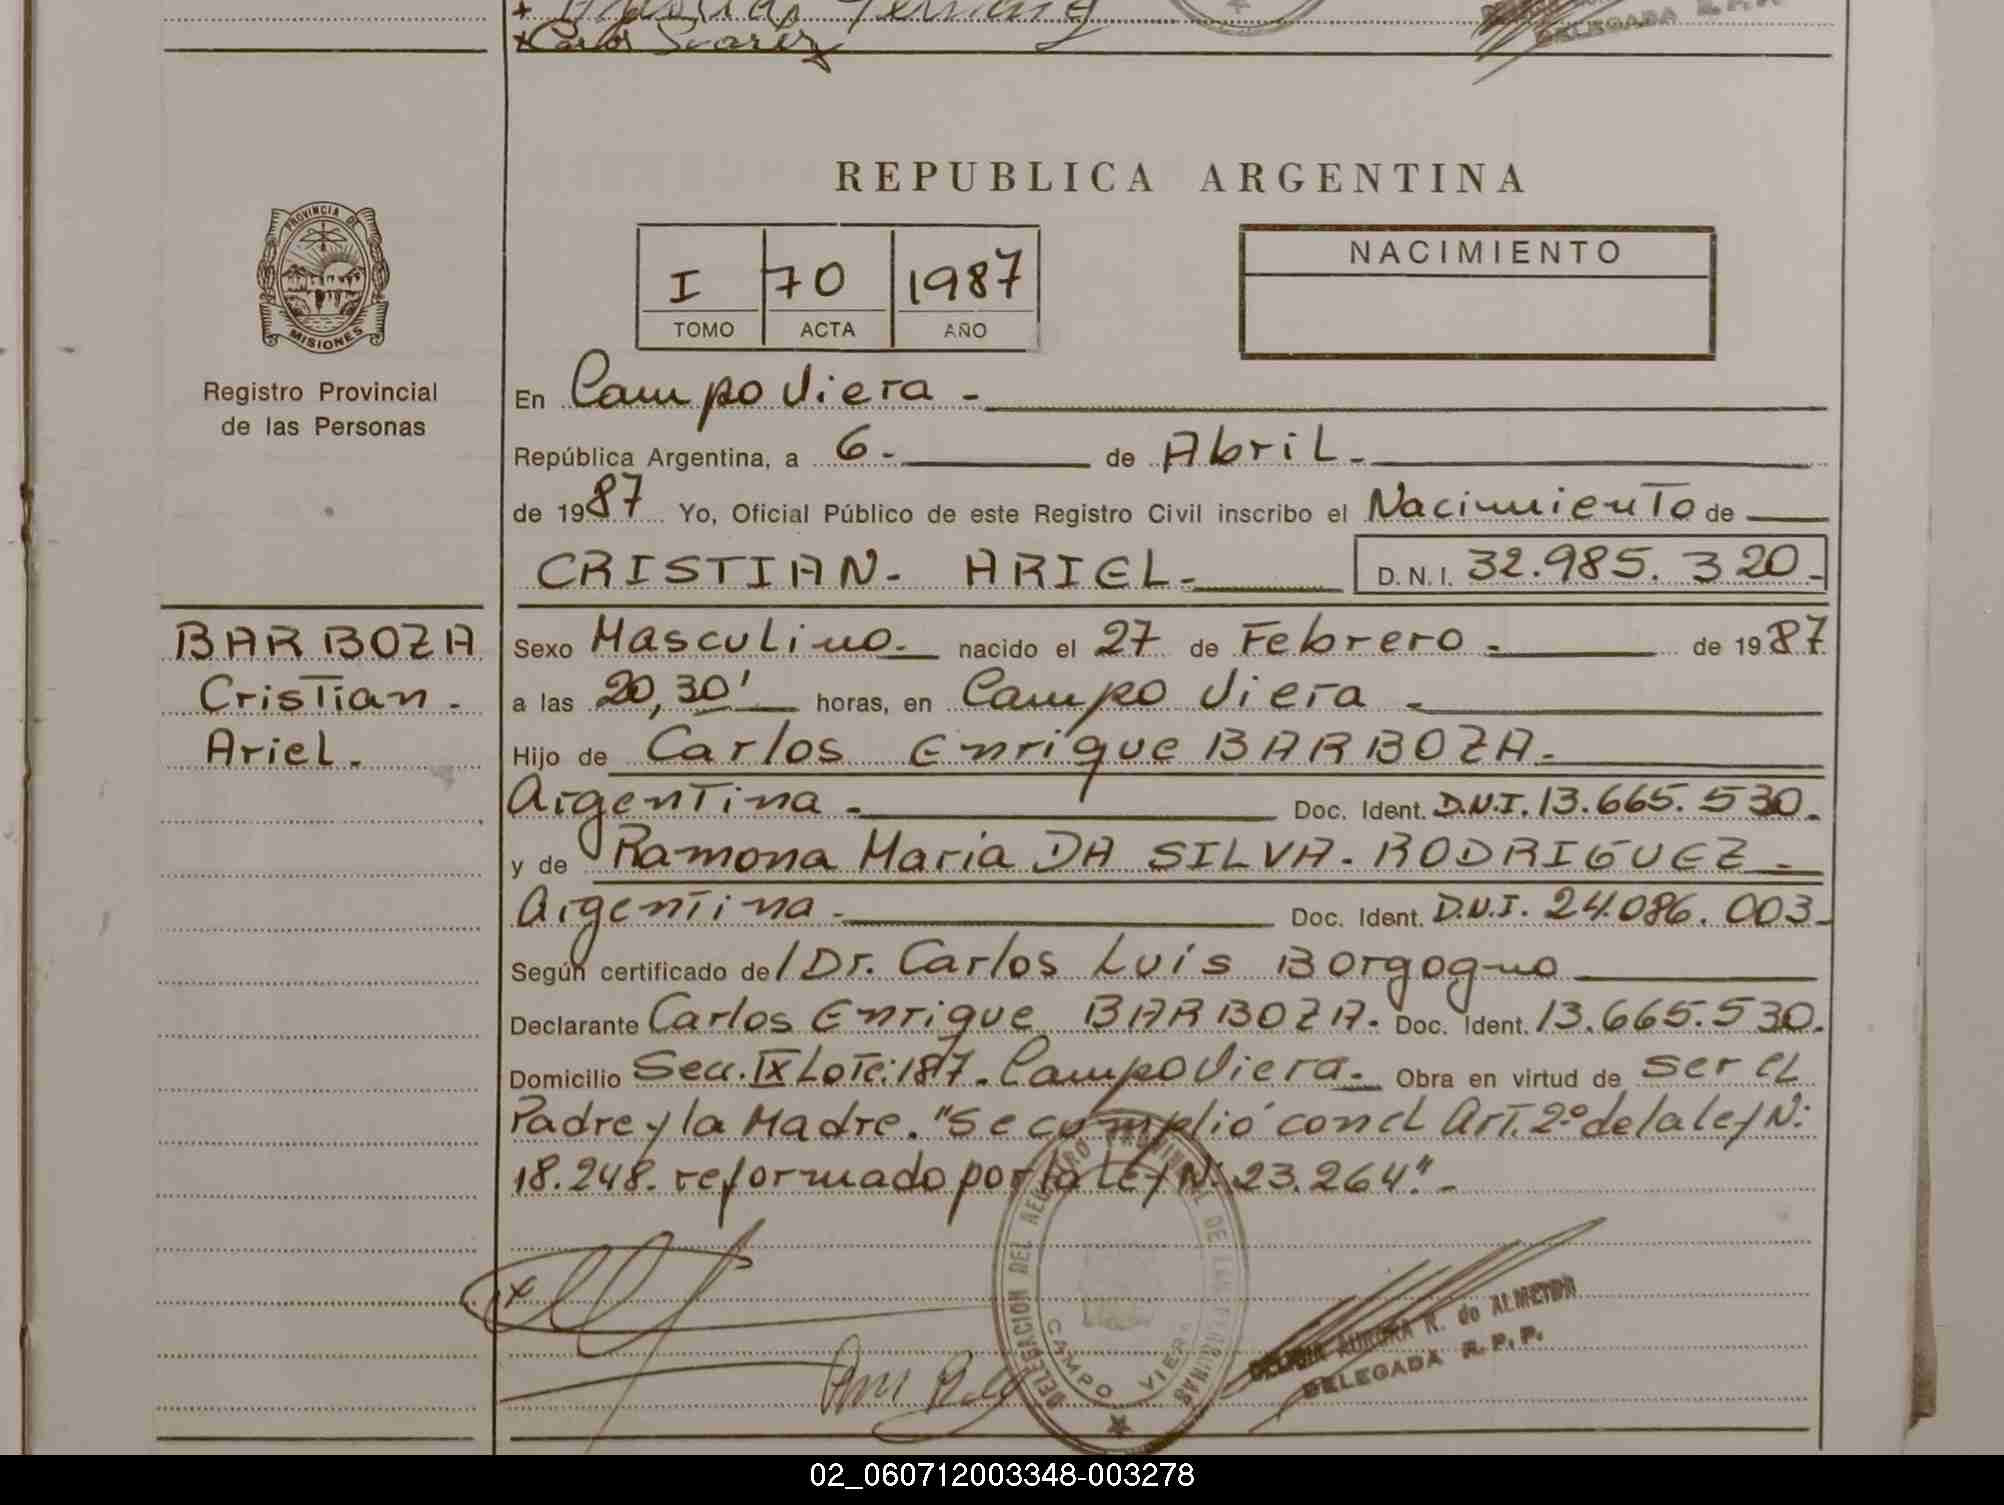 Carlos Suarez
DELEGADA R. P. P.
REPUBLICA ARGENTINA
PROVINCIA DE
MISIONES
I 70 1987
TOMO ACTA AÑO
NACIMIENTO
Registro Provincial
de las Personas
En Campo Viera -
República Argentina, a 6.- de Abril.-
de 1987 Yo, Oficial Público de este Registro Civil inscribo el Nacimiento de
CRISTIAN- ARIEL- D. N. I. 32.985.320.-
BARBOZA
Cristian.
Ariel.
Sexo Masculino.- nacido el 27 de Febrero.- de 1987
a las 20,30' horas, en Campo Viera -
Hijo de Carlos Enrique BARBOZA.-
Argentina.- Doc. Ident. D.N.I. 13.665.530.
y de Ramona Maria DA SILVA. RODRIGUEZ.-
Argentina.- Doc. Ident. D.N.I. 24.086.003.-
Según certificado de / Dr. Carlos Luis Borgogno
Declarante Carlos Enrique BARBOZA. Doc. Ident. 13.665.530.
Domicilio Secc. IX Lote: 187. Campo Viera.- Obra en virtud de ser el
Padre y la Madre. "Se cumplió con el Art. 2º de la ley N:
18.248. reformado por la ley N: 23.264".-
DELEGACION DEL REGISTRO PROVINCIAL DE LAS PERSONAS
CAMPO VIERA
AURORA R. de ALMEIDA
DELEGADA R. P. P.
02_060712003348-003278